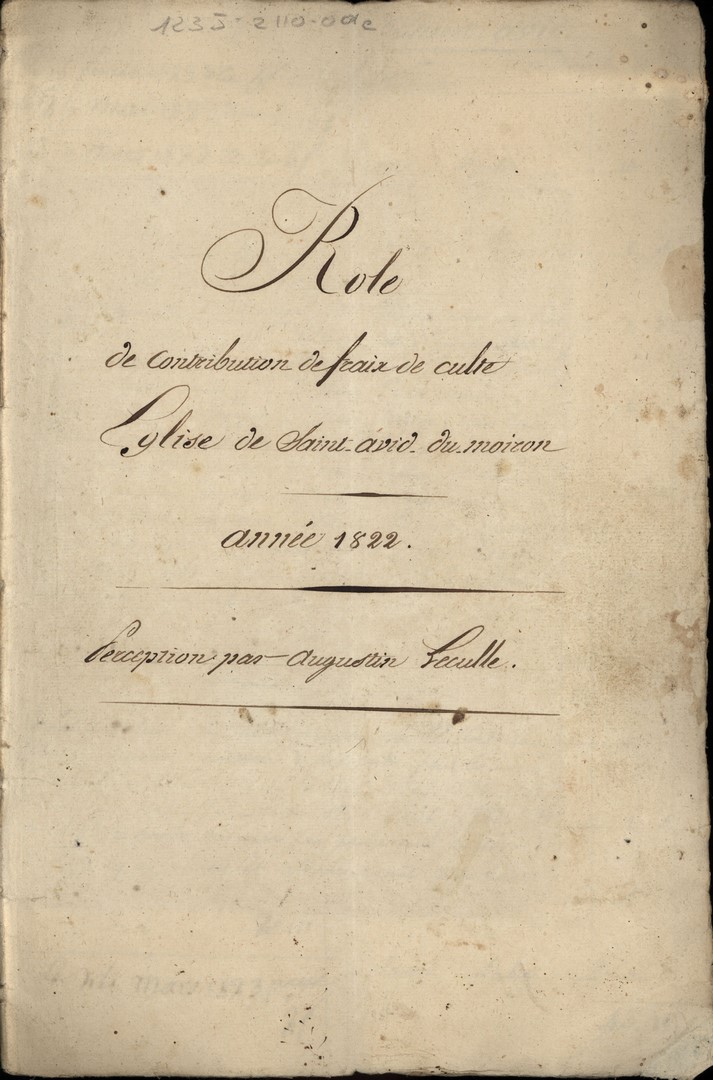 123J-2110-00c
Role
de contribution de fraix de culte
Eglise de Saint-avid-du-moiron
année 1822.
Perception par Augustin Lecullé.